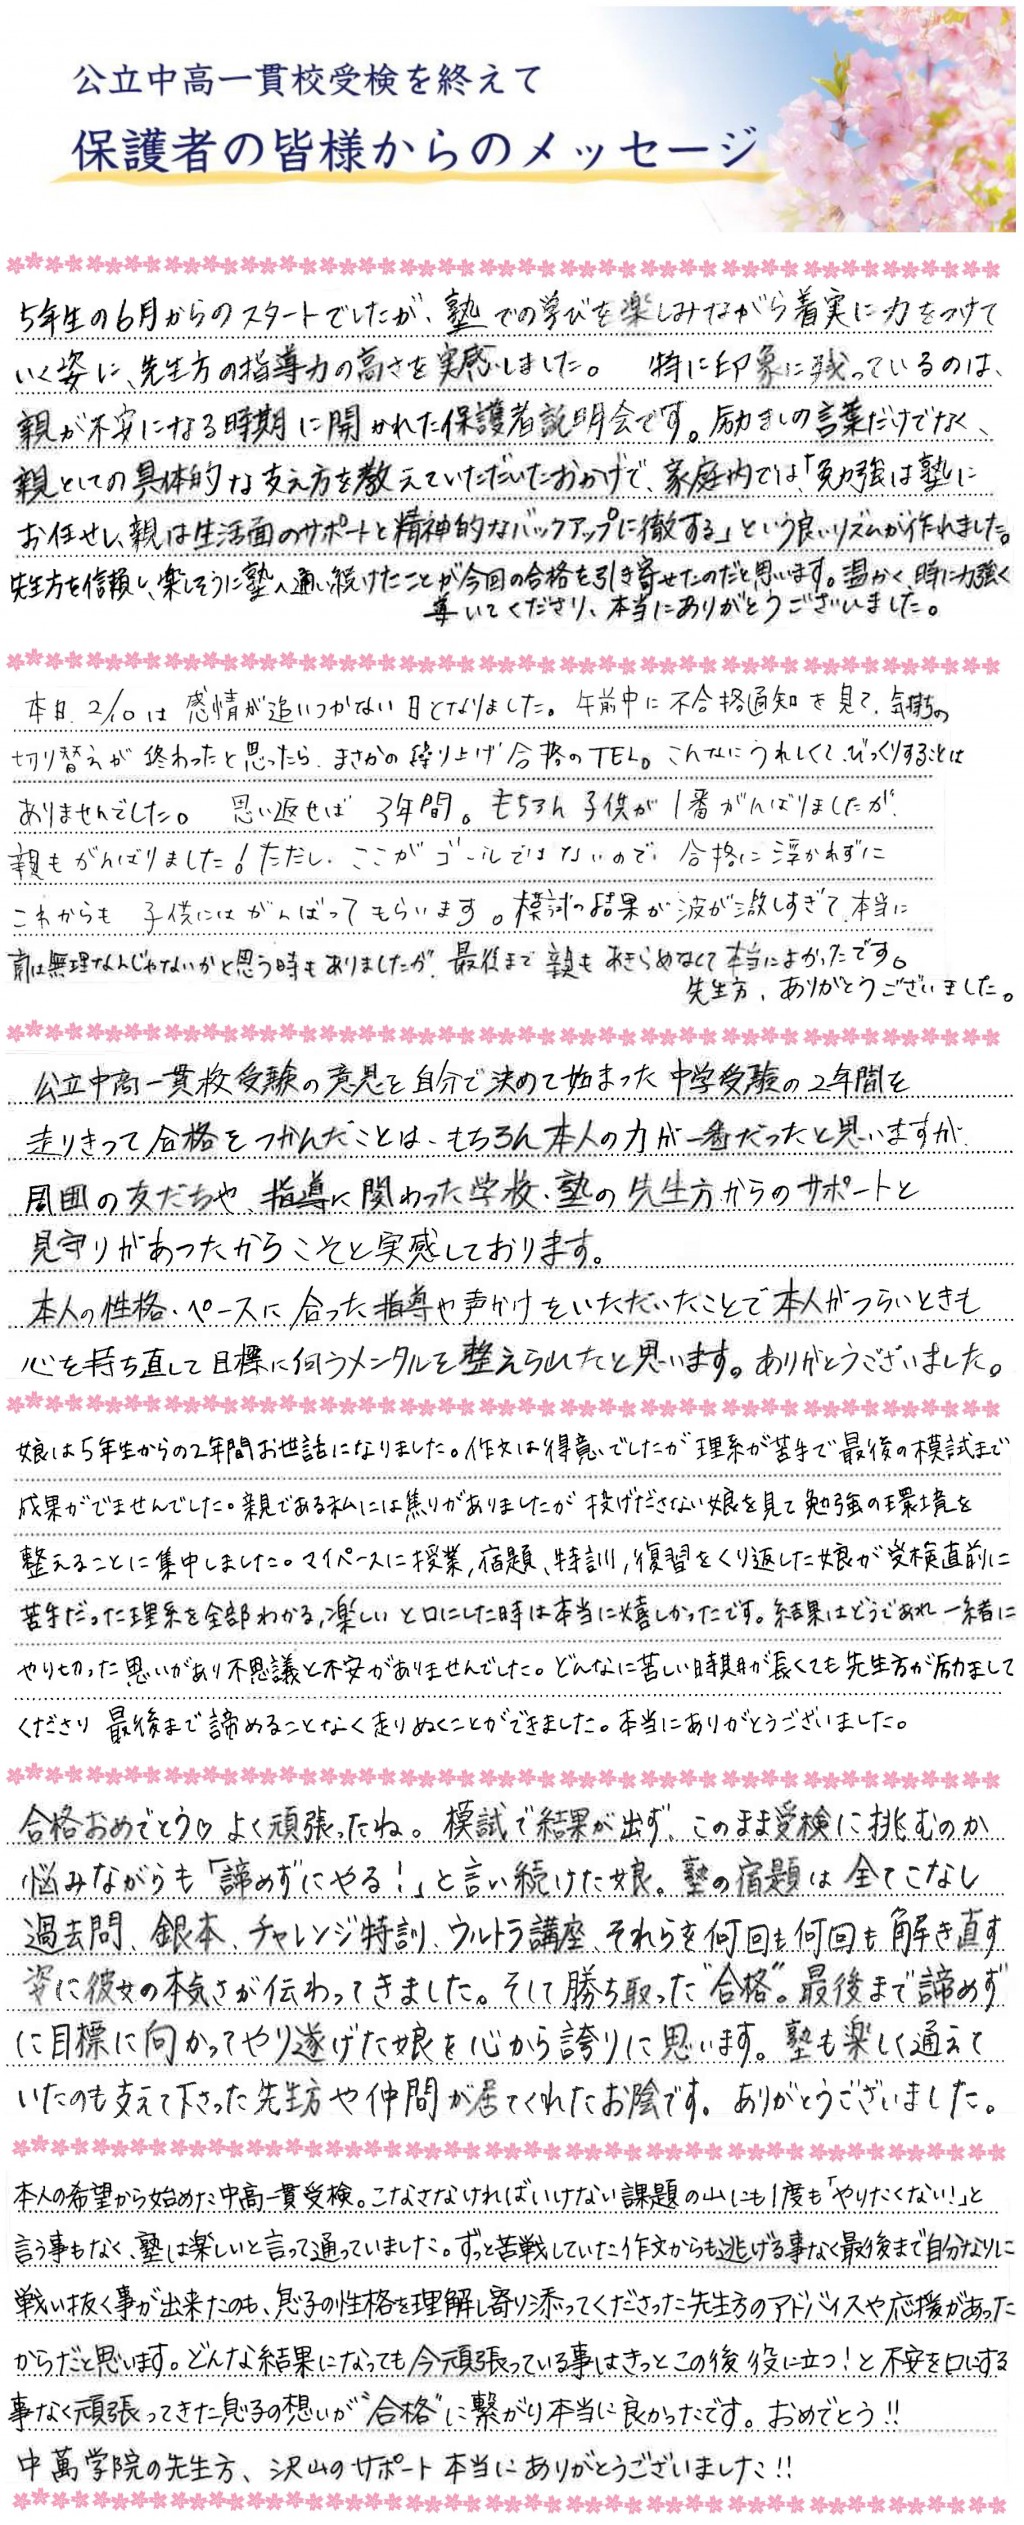 公立中高一貫校受検を終えて
保護者の皆様からのメッセージ
5年生の6月からのスタートでしたが、塾での学びを楽しみながら着実に力をつけて
いく姿に、先生方の指導力の高さを実感しました。 特に印象に残っているのは、
親が不安になる時期に開かれた保護者説明会です。励ましの言葉だけでなく、
親としての具体的な支え方を教えていただいたおかげで、家庭内では、「勉強は塾に
お任せし、親は生活面のサポートと精神的なバックアップに徹する」という良いリズムが作れました。
先生方を信頼し、楽しそうに塾へ通い続けたことが今回の合格を引き寄せたのだと思います。温かく、時に力強く
導いてくださり、本当にありがとうございました。
本日、2/10は 感情が追いつかない日となりました。午前中に不合格通知を見て、気持ちの
切り替えが終わったと思ったら、まさかの繰り上げ合格のTEL。こんなにうれしくて、びっくりすることは
ありませんでした。 思い返せば 3年間。もちろん子供が1番がんばりましたが、
親もがんばりました!ただし、ここがゴールではないので、合格に浮かれずに
これからも 子供にはがんばってもらいます。模試の結果が波が激しすぎて、本当に
前は無理なんじゃないかと思う時もありましたが、最後まで親もあきらめなくて本当によかったです。
先生方、ありがとうございました。
公立中高一貫校受験の意思を自分で決めて始まった中学受験の2年間を
走りきって合格をつかんだことは、もちろん本人の力が一番だったと思いますが、
周囲の友だちや、指導に関わった学校・塾の先生方からのサポートと
見守りがあったからこそと実感しております。
本人の性格・ペースに合った指導や声かけをいただいたことで本人がつらいときも
心を持ち直して目標に向うメンタルを整えられたと思います。ありがとうございました。
娘は5年生からの2年間お世話になりました。作文は得意でしたが理系が苦手で最後の模試まで
成果がでませんでした。親である私には焦りがありましたが投げださない娘を見て勉強の環境を
整えることに集中しました。マイペースに授業,宿題,特訓,復習をくり返した娘が受検直前に
苦手だった理系を全部わかる,楽しいと口にした時は本当に嬉しかったです。結果はどうであれ一緒に
やり切った思いがあり不思議と不安がありませんでした。どんなに苦しい時期が長くても先生方が励まして
くださり 最後まで諦めることなく走りぬくことができました。本当にありがとうございました。
合格おめでとう♡よく頑張ったね。模試で結果が出ず、このまま受検に挑むのか
悩みながらも「諦めずにやる!」と言い続けた娘。塾の宿題は全てこなし
過去問、銀本、チャレンジ特訓、ウルトラ講座、それらを何回も何回も解き直す
姿に彼女の本気さが伝わってきました。そして勝ち取った"合格"。最後まで諦めず
に目標に向かってやり遂げた娘を心から誇りに思います。塾も楽しく通えて
いたのも支えて下さった先生方や仲間が居てくれたお陰です。ありがとうございました。
本人の希望から始めた中高一貫受検。こなさなければいけない課題の山にも1度も「やりたくない!」と
言う事もなく、塾は楽しいと言って通っていました。ずっと苦戦していた作文からも逃げる事なく最後まで自分なりに
戦い抜く事が出来たのも、息子の性格を理解し寄り添ってくださった先生方のアドバイスや応援があった
からだと思います。どんな結果になっても今頑張っている事はきっとこの後役に立つ!と不安を口にする
事なく頑張ってきた息子の想いが"合格"に繋がり本当に良かったです。おめでとう!!
中萬学院の先生方、沢山のサポート本当にありがとうございました!!